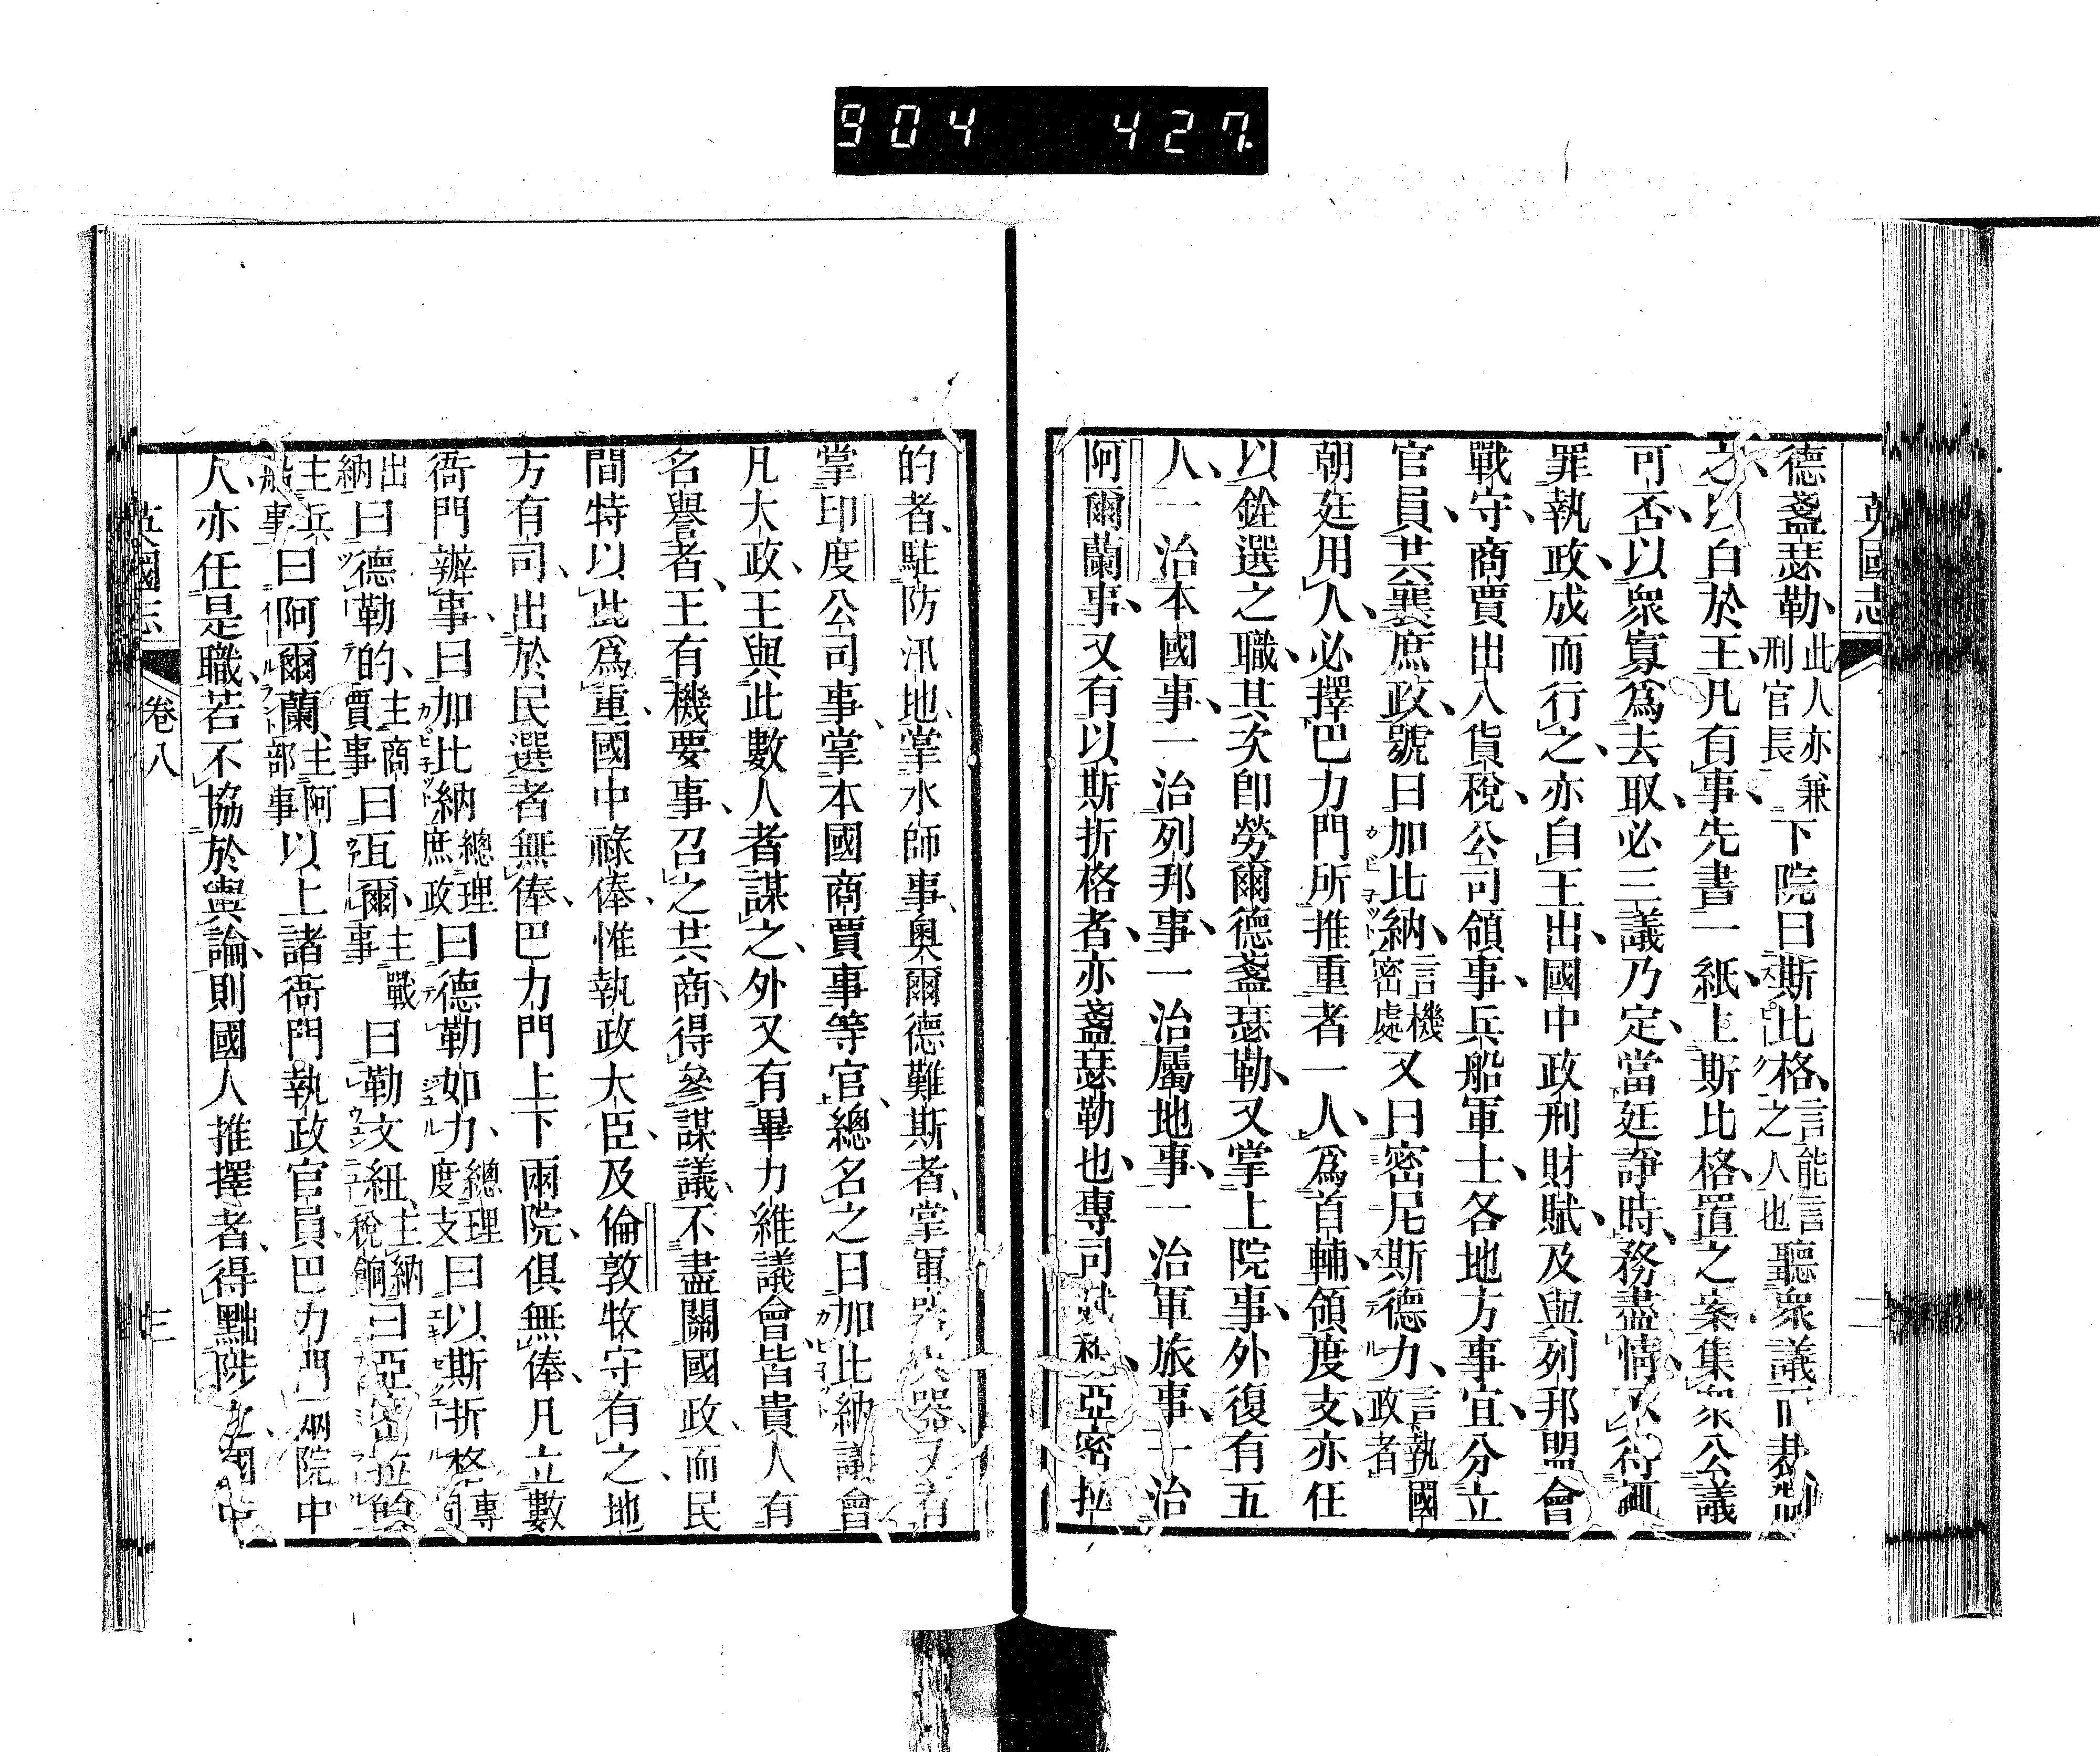 904 427.
英國志
德盞瑟勒、此人亦兼刑官長下院曰斯比格、言能言之人也聽衆議而裁制
之、以白於王、凡有事、先書一紙、上斯比格、置之案、集衆公議
可否、以衆寡爲去取、必三議乃定、當廷諍時、務盡情、不得
罪執政、成而行之、亦自王出、國中政刑財賦、及與列邦盟會
戰守、商賈出入貨稅、公司領事、兵船軍士、各地方事宜、分立
官員、共襄庶政、號曰加比納、言機密處又曰密尼斯德力、言執國政者
朝廷用人、必擇巴力門所推重者一人、爲首輔、領度支、亦任
以銓選之職、其次卽勞爾德盞瑟勒、又掌上院事、外復有五
人、一治本國事、一治列邦事、一治屬地事、一治軍旅事、一治
阿爾蘭事、又有以斯折格者、亦盞瑟勒也、專司賦稅、亞密拉
的者、駐防汛地、掌水師事、奧爾德難斯者、掌軍器火器、又有
掌印度公司事、掌本國商賈事等官、總名之曰加比納議會
凡大政、王與此數人者謀之、外又有畢力維議會、皆貴人有
名譽者、王有機要事、召之共商、得參謀議、不盡關國政、而民
間特以此爲重、國中祿俸、惟執政大臣、及倫敦牧守有之、地
方有司、出於民選者無俸、巴力門上下兩院、俱無俸、凡立數
衙門辦事、曰加比納總理庶政曰德勒如力、總理度支曰以斯折格專司
出納曰德勒的、主商賈事曰瓦爾、主戰事曰勒文紐、主納稅餉曰亞密拉的
主兵船事曰阿爾蘭、主阿部事以上諸衙門執政官員、巴力門兩院中
人、亦任是職、若不協於輿論、則國人推擇者、得黜陟之、國中
英國志 卷八 三